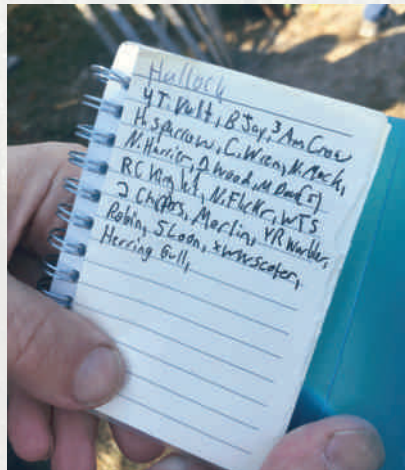 Hallock
4 T. Vult, B Jay, 3 Am Crow
H. Sparrow, C. Wren, N. Mock,
N. Harrier, D Wood, M Dove(5)
RC Kinglet, N. Flickr, WTS
J Chipps, Merlin, YR Warbler,
Robin, 5 Loon, x wwscoter,
Herring Gull,